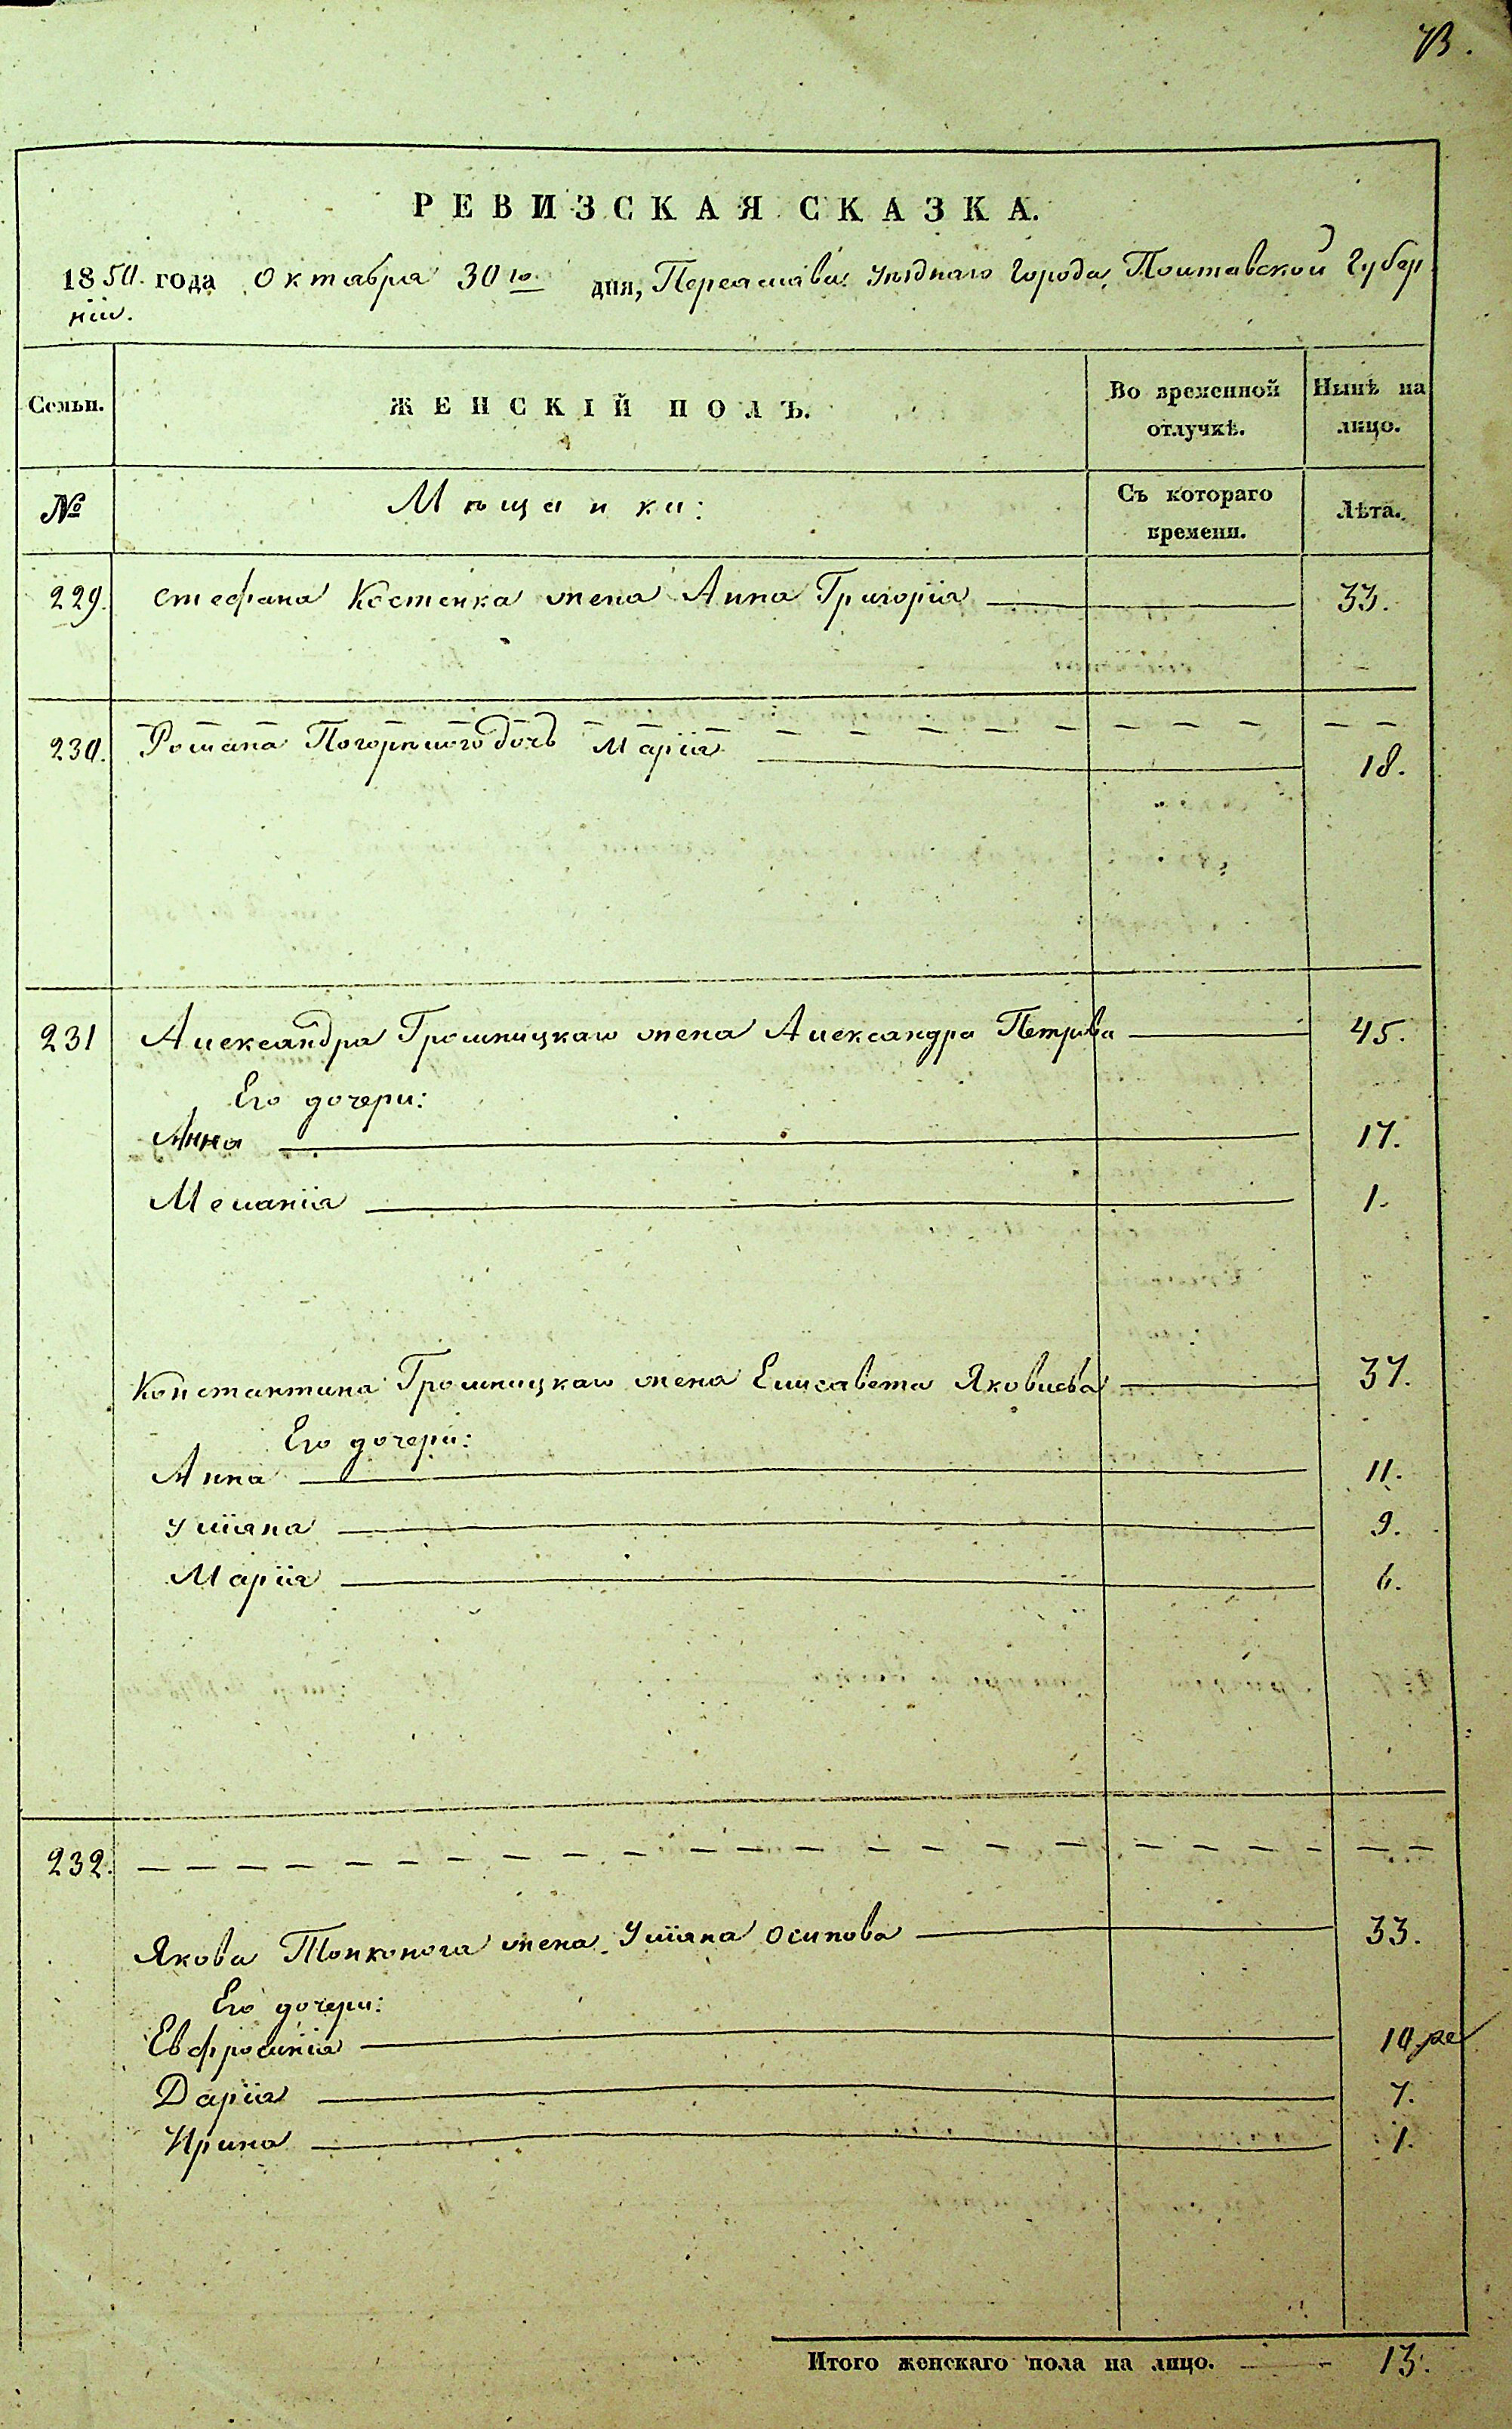 73.
РЕВИЗСКАЯ СКАЗКА.
1850. года Октября 30го дня, Переяслава уѣзднаго города, Полтавской Губер
ніи.
Семьи.
ЖЕНСКІЙ ПОЛЪ.
Во временной отлучкѣ.
Нынѣ на лицо.
№
Мѣщанки:
Съ котораго времени.
Лѣта.
229. Стефана Костенка жена Анна Григорія 33.
230. Романа Погорѣлого дочь Марія 18.
231 Александра Громницкаго жена Александра Петрова 45.
Его дочери:
Анна 17.
Меланія 1.
Константина Громницкаго жена Елисавета Яковлева 37.
Его дочери:
Анна 11.
Уліяна 9.
Марія 6.
232.
Якова Тонконога жена Уліяна Осипова 33.
Его дочери:
Евфросинія 10
Дарія 7.
Ирина 1.
Итого женскаго пола на лицо. 13.